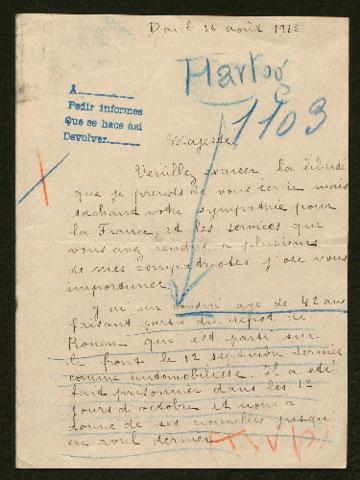 Dar le 15 août 1915
Hartog
1103
A
Pedir informes
Que se hace asi
Devolver
Majesté,
Veuillez excuser la liberté
que je prends de vous écrire mais
sachant votre sympathie pour
la France, et les services que
vous avez rendus à plusieurs
de mes compatriotes j'ose vous
importuner.
J'ai un cousin agé de 42 ans
faisant partie du dépot de
Rouen qui est parti sur
le front le 12 septembre dernier
comme automobiliste. Il a été
fait prisonnier dans les 1er
jours d'octobre et nous a
donné de ses nouvelles jusqu'
en avril dernier